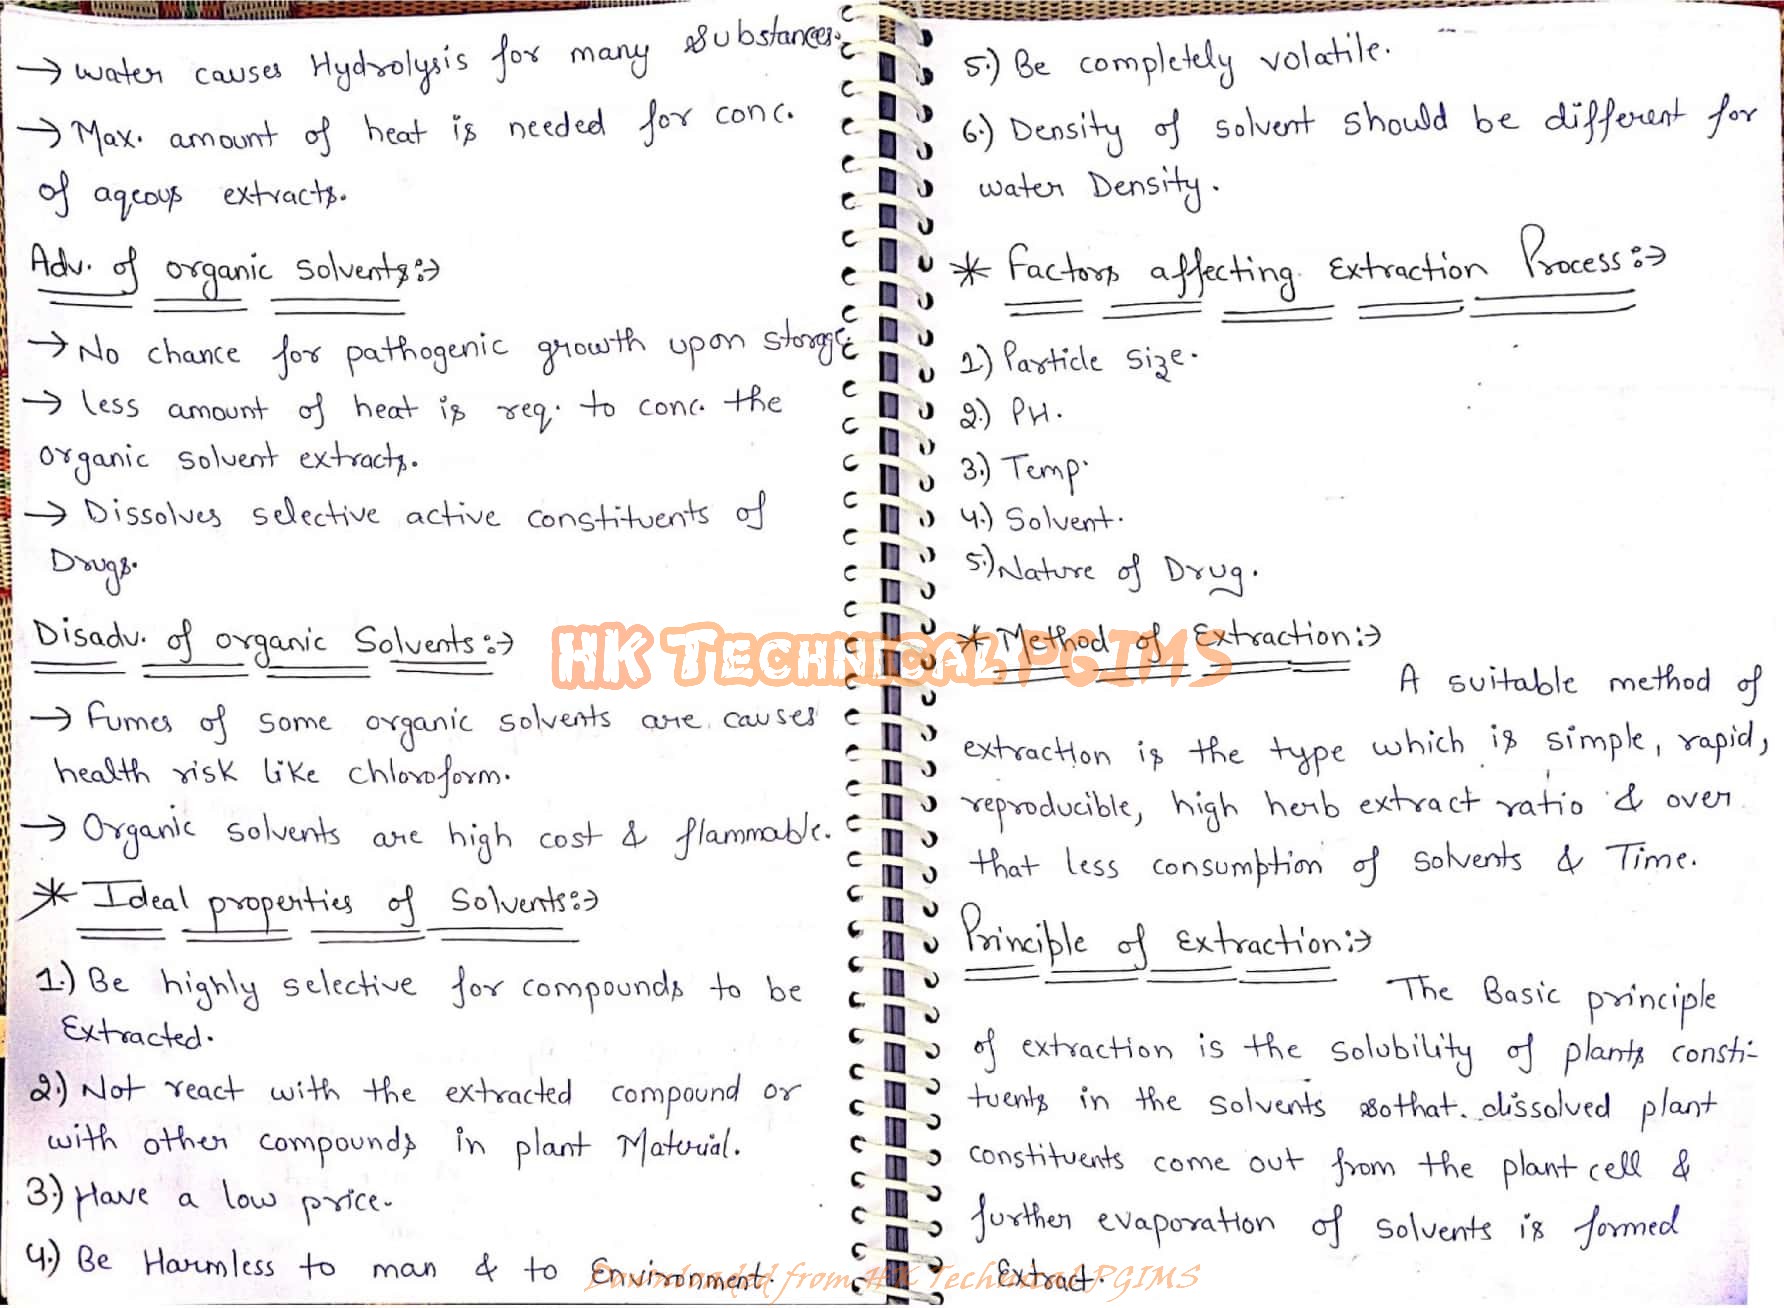 → water causes Hydrolysis for many substances.
→ Max. amount of heat is needed for conc.
of aqeous extracts.
Adv. of organic solvents:→
→ No chance for pathogenic growth upon storage
→ less amount of heat is req. to conc. the
organic solvent extracts.
→ Dissolves selective active constituents of
Drugs.
Disadv. of organic Solvents:→
→ Fumes of some organic solvents are causes
health risk like chloroform.
→ Organic solvents are high cost & flammable.
* Ideal properties of Solvents:→
1.) Be highly selective for compounds to be
Extracted.
2.) Not react with the extracted compound or
with other compounds in plant Material.
3.) Have a low price.
4.) Be Harmless to man & to Environment.
5.) Be completely volatile.
6.) Density of solvent should be different for
water Density.
* Factors affecting Extraction Process:→
1.) Particle size.
2.) PH.
3.) Temp.
4.) Solvent.
5.) Nature of Drug.
* Method of Extraction:→
A suitable method of
extraction is the type which is simple, rapid,
reproducible, high herb extract ratio & over
that less consumption of solvents & Time.
Principle of Extraction:→
The Basic principle
of extraction is the solubility of plants consti-
tuents in the solvents sothat dissolved plant
constituents come out from the plant cell &
further evaporation of solvents is formed
Extract.
HK TECHNICAL PGIMS
Downloaded from HK Technical PGIMS